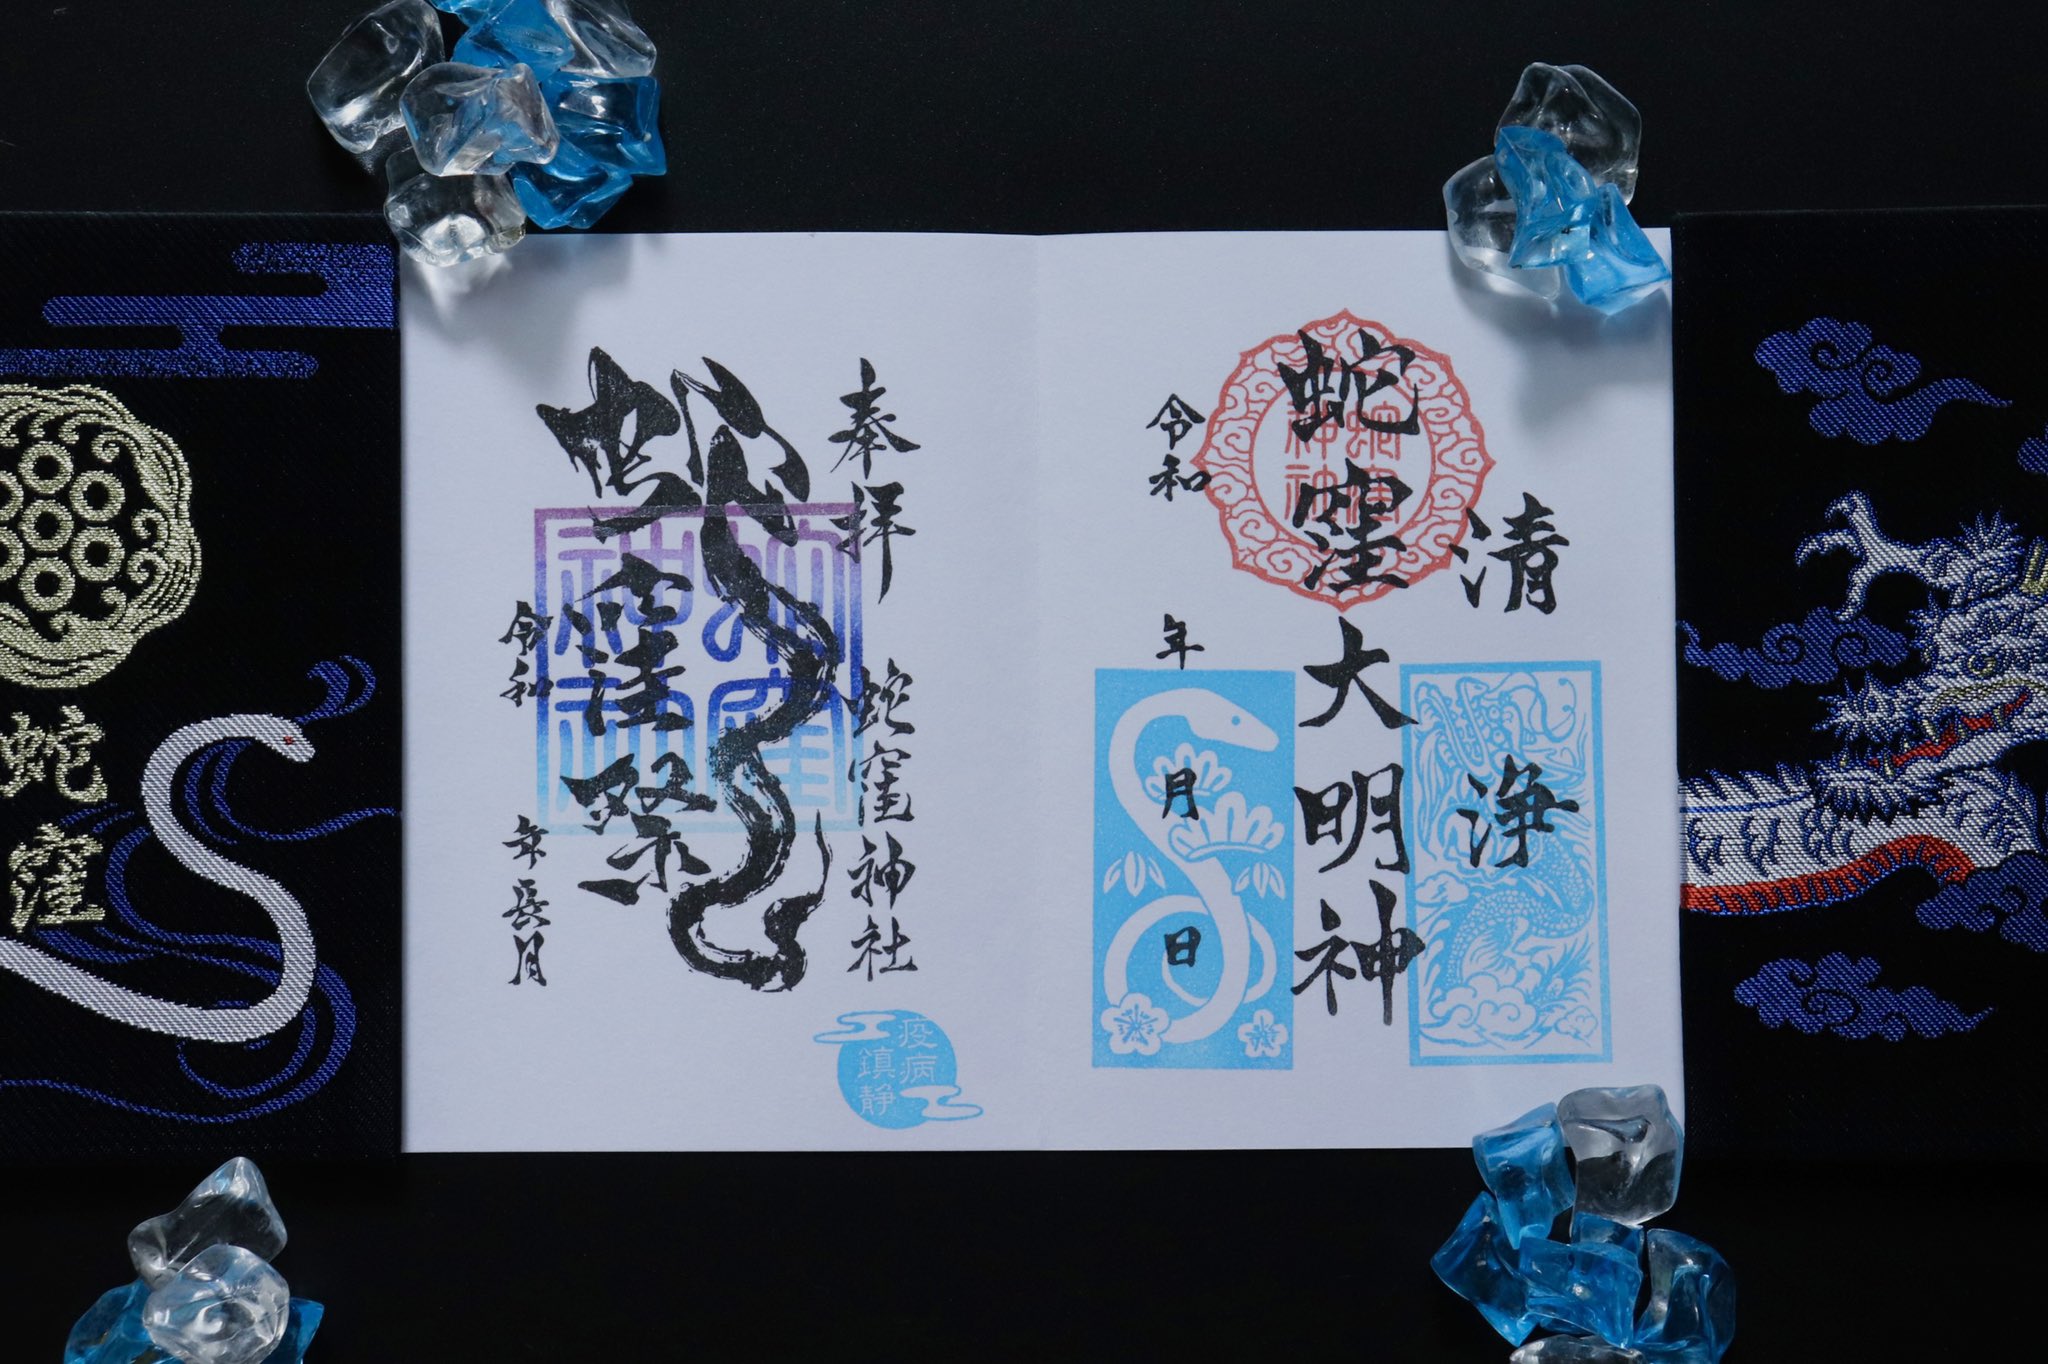 清浄
蛇窪大明神
蛇窪神社
令和 年 月 日
奉拝
蛇窪神社
蛇窪祭
蛇窪神社
令和 年長月
疫病
鎮静
蛇窪